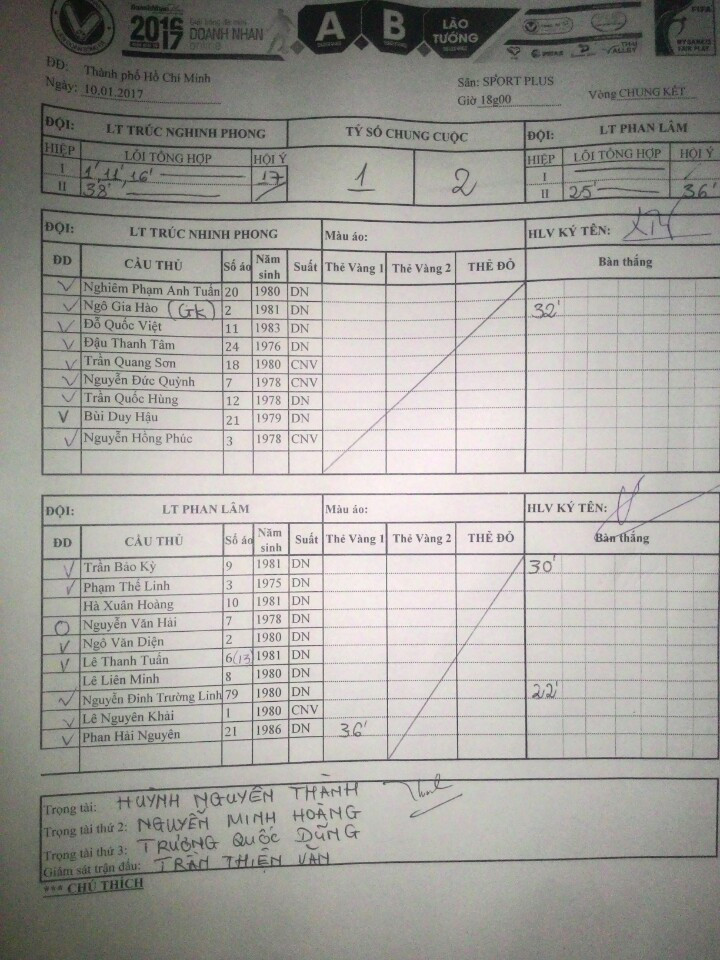 2016 2017 DOANH NHAN online A B LÃO TƯỚNG FIFA
ĐĐ: Thành phố Hồ Chí Minh
Ngày: 10.01.2017
Sân: SPORT PLUS
Giờ 18g00 Vòng CHUNG KẾT
ĐỘI: LT TRÚC NGHINH PHONG TỶ SỐ CHUNG CUỘC ĐỘI: LT PHAN LÂM
HIỆP LỖI TỔNG HỢP HỘI Ý 1 2 HIỆP LỖI TỔNG HỢP HỘI Ý
I 1' 11' 16' 17 I
II 38' II 25' 36'
ĐỘI: LT TRÚC NHINH PHONG Màu áo: HLV KÝ TÊN:
ĐD CẦU THỦ Số áo Năm sinh Suất Thẻ Vàng 1 Thẻ Vàng 2 THẺ ĐỎ Bàn thắng
Nghiêm Phạm Anh Tuấn 20 1980 DN
Ngô Gia Hào (GK) 2 1981 DN 32'
Đỗ Quốc Việt 11 1983 DN
Đậu Thanh Tâm 24 1976 DN
Trần Quang Sơn 18 1980 CNV
Nguyễn Đức Quỳnh 7 1978 CNV
Trần Quốc Hùng 12 1978 DN
Bùi Duy Hậu 21 1979 DN
Nguyễn Hồng Phúc 3 1978 CNV
ĐỘI: LT PHAN LÂM Màu áo: HLV KÝ TÊN:
ĐD CẦU THỦ Số áo Năm sinh Suất Thẻ Vàng 1 Thẻ Vàng 2 THẺ ĐỎ Bàn thắng
Trần Bảo Kỳ 9 1981 DN 30'
Phạm Thế Linh 3 1975 DN
Hà Xuân Hoàng 10 1981 DN
Nguyễn Văn Hải 7 1978 DN
Ngô Văn Diện 2 1980 DN
Lê Thanh Tuấn 6 (13) 1981 DN
Lê Liên Minh 8 1980 DN
Nguyễn Đình Trường Linh 79 1980 DN 22'
Lê Nguyên Khải 1 1980 CNV
Phan Hải Nguyên 21 1986 DN 36'
Trọng tài: HUỲNH NGUYÊN THÀNH
Trọng tài thứ 2: NGUYỄN MINH HOÀNG
Trọng tài thứ 3: TRƯƠNG QUỐC DŨNG
Giám sát trận đấu: TRẦN THIỆN VĂN
*** CHÚ THÍCH